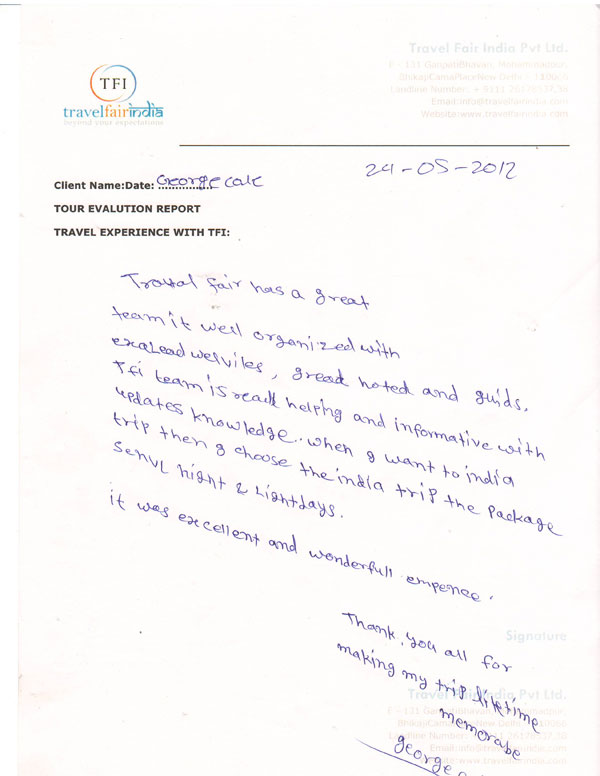 Travel Fair India Pvt Ltd.
F - 131 GanpatiBhavan, Mohammadpur,
BhikajiCamaPlaceNew Delhi - 110066
Landline Number: + 9111 26178537,38
Email:info@travelfairindia.com
Website:www.travelfairindia.com
TFI
travelfairindia
beyond your expectations
24-05-2012
Client Name:Date: George
TOUR EVALUTION REPORT
TRAVEL EXPERIENCE WITH TFI:
Traval fair has a great
team it well organized with
, great hoted and guids.
Tfi team is helping and informative with
updates knowledge. when g want to india
trip then g choose the india trip the package
night & days.
it was excellent and wonderfull
Thank you all for
making my trip
memorabe
george
Signature
Travel Fair India Pvt Ltd.
F - 131 GanpatiBhavan, Mohammadpur,
BhikajiCamaPlaceNew Delhi - 110066
Landline Number: + 9111 26178537,38
Email:info@travelfairindia.com
Website:www.travelfairindia.com